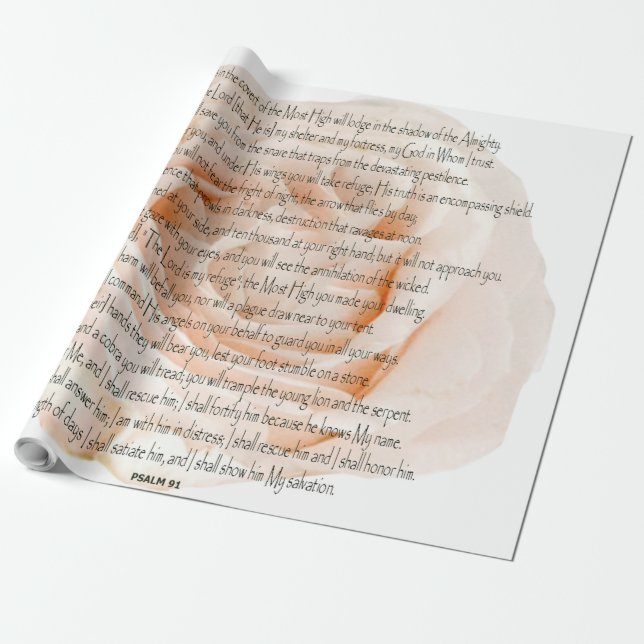 in the covert of the Most High will lodge in the shadow of the Almighty.
Lord [that He is] my shelter and my fortress, my God in Whom I trust.
save you from the snare that traps from the devastating pestilence.
you, and under His wings you will take refuge; His truth is an encompassing shield.
will not fear the fright of night, the arrow that flies by day;
that prowls in darkness, destruction that ravages at noon.
at your side, and ten thousand at your right hand; but it will not approach you.
gaze with your eyes, and you will see the annihilation of the wicked.
"The Lord is my refuge"; the Most High you made your dwelling.
harm will befall you, nor will a plague draw near to your tent.
command His angels on your behalf to guard you in all your ways.
hands they will bear you, lest your foot stumble on a stone.
and a cobra you will tread; you will trample the young lion and the serpent.
Me, and I shall rescue him; I shall fortify him because he knows My name.
shall answer him; I am with him in distress; I shall rescue him and I shall honor him.
of days I shall satiate him, and I shall show him My salvation.
PSALM 91